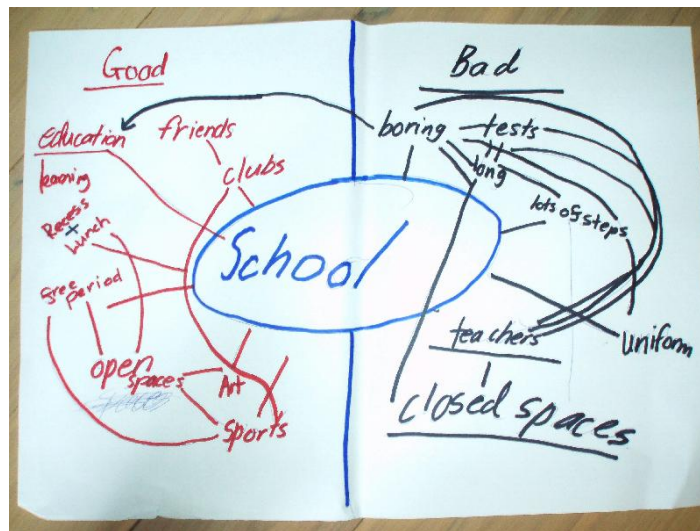 Good
Education
learning
friends
clubs
Recess
+
Lunch
free period
open
spaces
Art
Sports
School
Bad
boring
tests
long
lots of steps
teachers
uniform
closed spaces